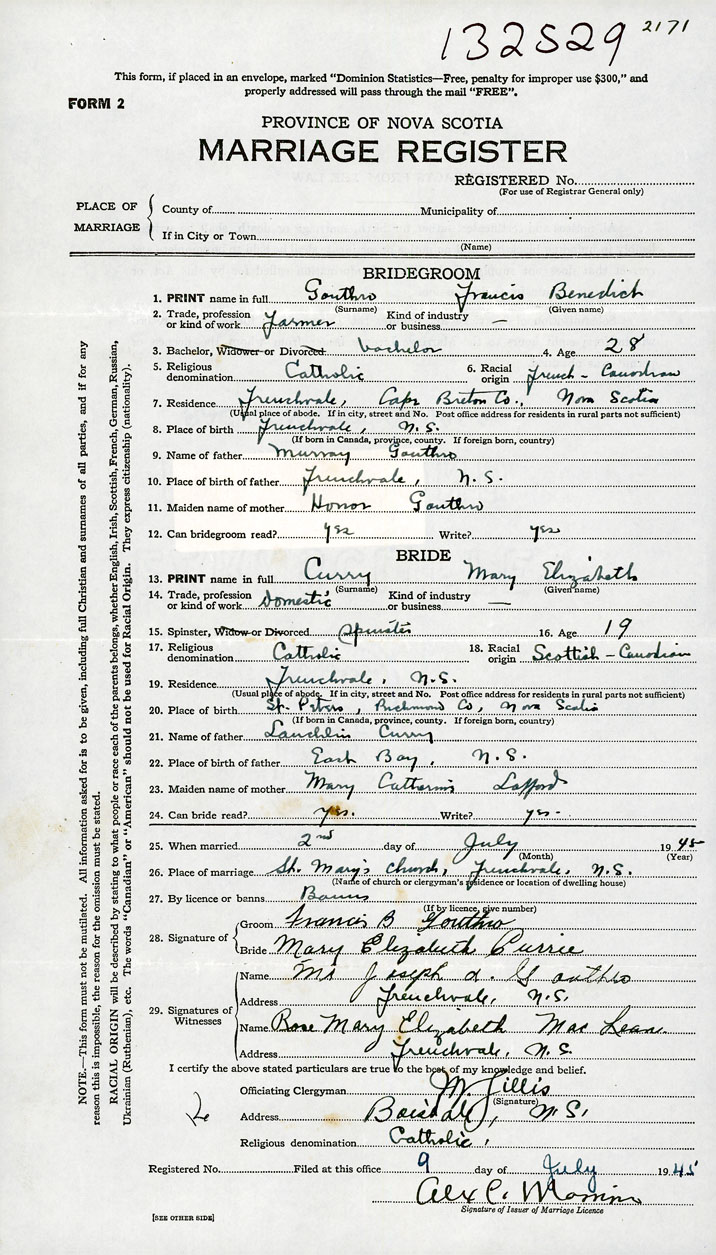 132529 2171
This form, if placed in an envelope, marked "Dominion Statistics—Free, penalty for improper use $300," and
properly addressed will pass through the mail "FREE".
FORM 2
PROVINCE OF NOVA SCOTIA
MARRIAGE REGISTER
REGISTERED No.
(For use of Registrar General only)
PLACE OF MARRIAGE
County of Municipality of
If in City or Town
(Name)
BRIDEGROOM
1. PRINT name in full Gouthro Francis Benedict
(Surname) (Given name)
2. Trade, profession or kind of work Farmer Kind of industry or business —
3. Bachelor, Widower or Divorced bachelor 4. Age 28
5. Religious denomination Catholic 6. Racial origin French - Canadian
7. Residence Frenchvale, Cape Breton Co., Nova Scotia
(Usual place of abode. If in city, street and No. Post office address for residents in rural parts not sufficient)
8. Place of birth Frenchvale, N.S.
(If born in Canada, province, county. If foreign born, country)
9. Name of father Murray Gouthro
10. Place of birth of father Frenchvale, N.S.
11. Maiden name of mother Honor Gouthro
12. Can bridegroom read? yes Write? yes
BRIDE
13. PRINT name in full Curry Mary Elizabeth
(Surname) (Given name)
14. Trade, profession or kind of work Domestic Kind of industry or business —
15. Spinster, Widow or Divorced spinster 16. Age 19
17. Religious denomination Catholic 18. Racial origin Scottish - Canadian
19. Residence Frenchvale, N.S.
(Usual place of abode. If in city, street and No. Post office address for residents in rural parts not sufficient)
20. Place of birth St. Peters, Richmond Co, Nova Scotia
(If born in Canada, province, county. If foreign born, country)
21. Name of father Lauchlin Curry
22. Place of birth of father East Bay, N.S.
23. Maiden name of mother Mary Catherine Lafford
24. Can bride read? yes. Write? yes.
25. When married 2nd day of July 1945
(Month) (Year)
26. Place of marriage St. Mary's Church, Frenchvale, N.S.
(Name of church or clergyman's residence or location of dwelling house)
27. By licence or banns Banns
(If by licence, give number)
28. Signature of Groom Francis B Gouthro
Bride Mary Elizabeth Currie
29. Signatures of Witnesses
Name Mr Joseph A. Gouthro
Address Frenchvale, N.S.
Name Rose Mary Elizabeth Mac Lean
Address Frenchvale, N.S.
I certify the above stated particulars are true to the best of my knowledge and belief.
Officiating Clergyman M. Gillis
(Signature)
Address Boisdale, N.S.
Religious denomination Catholic.
Registered No. Filed at this office 9 day of July 1945
Alex C.
Signature of Issuer of Marriage Licence
[SEE OTHER SIDE]
NOTE.—This form must not be mutilated. All information asked for is to be given, including full Christian and surnames of all parties, and if for any
reason this is impossible, the reason for the omission must be stated.
RACIAL ORIGIN will be described by stating to what people or race each of the parents belongs, whether English, Irish, Scottish, French, German, Russian,
Ukrainian (Ruthenian), etc. The words "Canadian" or "American" should not be used for Racial Origin. They express citizenship (nationality).